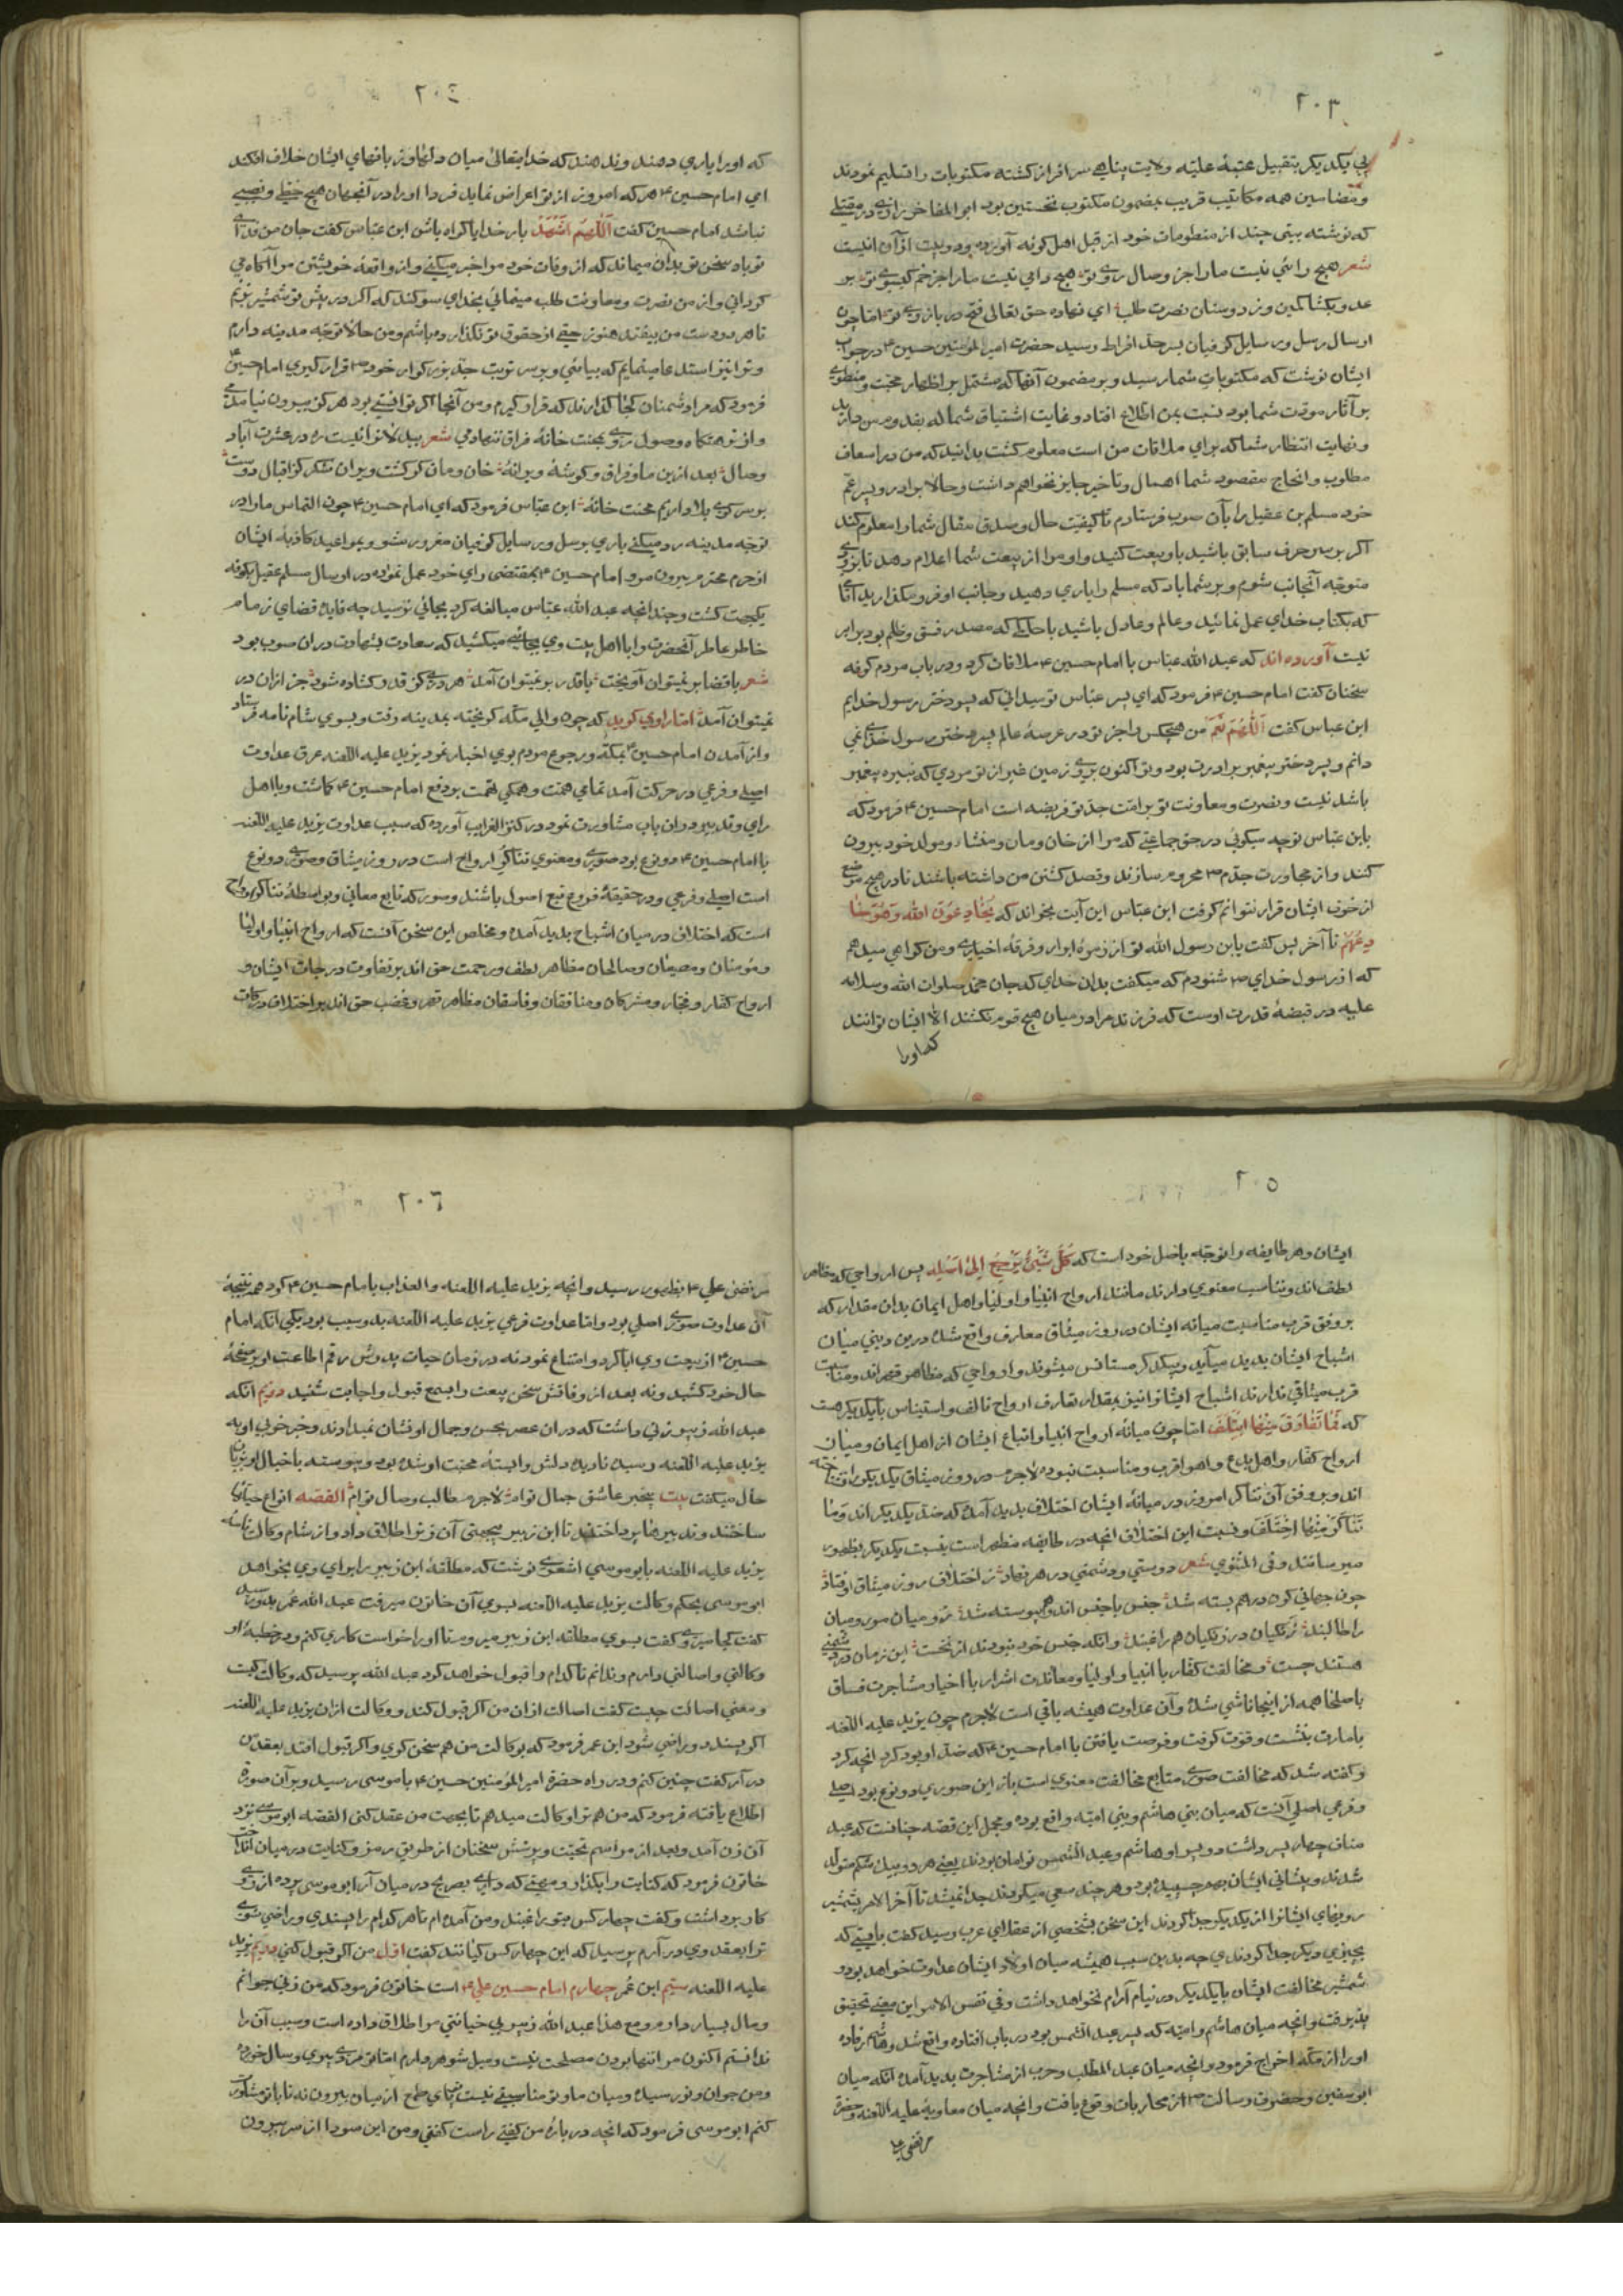 ٢٠٣
پی یکدیکر بتقبیل عتبهٔ علیّه ولایت پناهی سرافراز کشته مکتوبات را تسلیم نمودند
و مضامین همه مکاتیب قریب بمضمون مکتوب نخستین بود ابو المفاخر رازی در مقتلی
که نوشته بیتی چند از منظومات خود از قبل اهل کوفه آورده بود و بیت از آن اینست
شعر هیچ رائی نیست مارا جز وصال روی تو هیچ دامی نیست مارا جز خم کیسوی تو بر
عدو بکشا کمین وز دوستان نصرت طلب ای نهاده حق تعالی فتح در بازوی تو امّا چون
ارسال رسل و رسایل کوفیان بسر حدّ افراط رسید حضرت امیر المؤمنین حسین در جواب
ایشان نوشت که مکتوبات شما رسید و بر مضمون آنها که مشتمل بر اظهار محبّت و منطوی
بر آثار مودّت شما بود نسبت بمن اطلاع افتاد و غایت اشتیاق شما
و نهایت انتظار شما که برای ملاقات من است معلوم کشت بدانید که من در اسعاف
مطلوب و انجاح مقصود شما اهمال و تاخیر جایز نخواهم داشت و حالا برادر و پسر عمّ
خود مسلم بن عقیل را بآن صوب فرستادم تا کیفیّت حال و صدق مقال شما را معلوم کند
اکر بر سر حرف سابق باشید با او بیعت کنید و او مرا از بیعت شما اعلام دهد تا بزودی
متوجّه آنجانب شوم و بر شما باد که مسلم را یاری دهید و جانب او فرو مکذارید
که بکتاب خدای عمل نمائید و عالم و عادل باشید با حاکمی که مصدر فسق و ظلم بود برابر
نیست آورده اند که عبد الله عباس با امام حسین ملاقات کرد و در باب مردم کوفه
سخنان کفت امام حسین فرمود که ای پسر عباس تو میدانی که پسر دختر رسول خدایم
ابن عباس کفت اَللّٰهُمَّ نَعَم من هیچکس را جز تو در عرصهٔ عالم پسر دختر رسول خدای نمی
دانم و پسر دختر پیغمبر برادرت بود و تو اکنون بر روی زمین غیر از تو مردی که نبیره پیغمبر
باشد نیست و نصرت و معاونت تو بر امّت جدّ تو فریضه است امام حسین فرمود که
یابن عباس تو چه میکوئی در حق جماعتی که مرا از خان و مان و منشاء و مولد خود بیرون
کنند و از مجاورت جدّم محروم سازند و قصد کشتن من داشته باشند تا در هیچ موضع
از خوف ایشان قرار نتوانم کرفت ابن عباس این آیت بخواند که یُخَادِعُونَ الله وَهُوَ خَا
دِعُهُم تا آخر پس کفت یابن رسول الله تو از زمرهٔ ابرار و فرقهٔ اخیاری و من کواهی میدهم
که از رسول خدای شنودم که میکفت بدان خدای که جان محمد صلوات الله و سلامه
علیه در قبضهٔ قدرت اوست که فرزند مرا در میان هیچ قوم نکشند الّا ایشان توانند
که اورا
٢٠٤
که اورا یاری دهند و ندهند که خدایتعالی میان دلها و زبانهای ایشان خلاف افکند
ای امام حسین هر که امروز از تو اعراض نماید فردا اورا در آنجهان هیچ حظّی و نصیبی
نباشد امام حسین کفت اَللّٰهُمَّ اشْهَدْ بار خدایا کواه باش ابن عباس کفت جان من فدای
تو باد سخن تو بدان میماند که از وفات خود مرا خبر میکنی و از واقعهٔ خویشتن مرا آکاه می
کردانی و از من نصرت و معاونت طلب مینمائی بخدای سوکند که اکر در پیش تو شمشیر بزنم
تا هر دو دست من بیفتد هنوز حقّی از حقوق تو نکذارده باشم و من حالا توجّه مدینه دارم
و ترا نیز استدعا مینمایم که بیائی و بر سر تربت جدّ بزرکوار خود قرار کیری امام حسین
فرمود که مرا دشمنان کجا کذارند که قرار کیرم و من آنجا اکر توانستی بود هرکز بیرون نیامدمی
و از نزهتکاه وصول روی بمحنت خانهٔ فراق ننهادمی شعر
وصال بعد ازین ما و فراق و کوشهٔ ویرانهٔ خان و مان کر کشت ویران شکر کز اقبال دوست
بر سر کوی بلا داریم محنت خانهٔ ابن عباس فرمود که ای امام حسین چون التماس ما را در
توجّه مدینه رد میکنی باری برسل و رسایل کوفیان مغرور مشو و بمواعید کاذبهٔ ایشان
از حرم محترم بیرون مرو امام حسین بمقتضی رای خود عمل نموده در ارسال مسلم عقیل بکوفه
یکجهت کشت و چندانچه عبد الله عباس مبالغه کرد بجائی نرسید چه قاید قضای زمام
خاطر عاطر آنحضرت را با اهل بیت وی بجائی میکشید که سعادت شهادت در آن صوب بود
شعر با قضا بر نمیتوان آویخت با قدر بر نمیتوان آمد
نمیتوان آمد امّا راوی کوید که چون والی مکّه کریخته بمدینه رفت و بسوی شام نامه فرستاد
و از آمدن امام حسین بمکّه و رجوع مردم بوی اخبار نمود یزید علیه اللعنه عرق عداوت
اصلی و فرعی در حرکت آمد تمامی همّت و همکی نهمت بر دفع امام حسین کاشت و با اهل
رای و تدبیر در آن باب مشاورت نمود در کنز الغرایب آورده که سبب عداوت یزید علیه اللعنه
با امام حسین دو نوع بود صوری و معنوی تناکر ارواح است در روز میثاق و صوری دو نوع
است اصلی و فرعی و در حقیقة فروع تبع اصول باشند و صور که تابع معانی و بواسطهٔ تناکر ارواح
است که اختلاف در میان اشباح پدید آمده و مخلص این سخن آنست که ارواح انبیا و اولیا
و مؤمنان و مصیبان و صالحان مظاهر لطف و رحمت حق اند بر تفاوت درجات ایشان و
ارواح کفّار و فجّار و مشرکان و منافقان و فاسقان مظاهر قهر و غضب حق اند بر اختلاف درکات
٢٠٥
ایشان و هر طایفه را توجّه باصل خود است که کُلُّ شَیْءٍ یَرْجِعُ اِلیٰ اَصْلِهِ پس ارواحی که مظاهر
لطف اند و تناسب معنوی دارند مانند ارواح انبیا و اولیا و اهل ایمان بدان مقدار که
بر وفق قرب مناسبت میانه ایشان در روز میثاق معارف واقع شده درین دنیی میان
اشباح ایشان پدید میآید و بیکدیکر مستانس میشوند و ارواحی که مظاهر قهر اند و مناسبت
قرب میثاقی ندارند اشباح ایشانرا نیز بمقدار تعارف ارواح تالف و استیناس با یکدیکر هست
که فَمَا تَعَارَفَ مِنْهَا ایْتَلَفَ امّا چون میانهٔ ارواح انبیا و اتباع ایشان از اهل ایمان و میان
ارواح کفّار و اهل بدع و اهوا قرب و مناسبت نبوده لاجرم در روز میثاق یکدیکر را نشناخته
اند و بر وفق آن تناکر امروز در میانهٔ ایشان اختلاف پدید آمده که ضد یکدیکر اند وَمَا
تَنَاکَرَ مِنْهَا اخْتَلَفَ و نسبت این اختلاف آنچه در طایفه مظهر است بنسبت یکدیکر بظهور
میرسانند و فی المثنوی شعر دوستی و دشمنی در هر نهاد از اختلاف روز میثاق اوفتاد
چون جهانی کون درهم بسته شد جنس با جنس اندر پیوسته شد
را طالبند زنکیان در زنکیان هم راغبند وانکه جنس خود نبودند از نخست این زمان در دشمنی
هستند چست و مخالفت کفّار با انبیا و اولیا و معاندت اشرار با اخیار و مشاجرت فسّاق
با صلحا همه از اینجا ناشی شده و آن عداوت همیشه باقی است لاجرم چون یزید علیه اللعنه
بامارت بنشست و قوّت کرفت و فرصت یافتن با امام حسین که ضدّ او بود کرد آنچه کرد
و کفته شد که مخالفت صوری متابع مخالفت معنوی است باز این صوری دو نوع بود اصلی
و فرعی اصلی آنست که میان بنی هاشم و بنی امیّه واقع بوده و مجمل این قصّه چنانست که عبد
مناف چهار پسر داشت دو پسر او هاشم و عبد الشمس توأمان بودند یعنی هر دو بیک شکم متولّد
شدند و پیشانی ایشان بهم چسپیده بود و هر چند سعی میکردند جدا نمیشد تا آخر الامر بشمشیر
رویهای ایشانرا از یکدیکر جدا کردند این سخن بشخصی از عقلای عرب رسید کفت بایستی که
بچیزی دیکر جدا کردندی چه بدین سبب همیشه میان اولاد ایشان عداوت خواهد بود و
شمشیر مخالفت ایشان با یکدیکر در نیام آرام نخواهد داشت و فی نفس الامر این معنی تحقیق
پذیرفت و آنچه میان هاشم و امیّه که پسر عبد الشمس بود در باب افتاده واقع شد و هاشم
اورا از مکّه اخراج فرمود و آنچه میان عبد المطّلب و حرب از مشاجرت پدید آمده آنکه میان
ابو سفین و حضرت رسالت از محاربات وقوع یافت و آنچه میان معاویه علیه اللعنه و حضرة
مرتضی علی
٢٠٦
مرتضی علی بظهور رسید و آنچه یزید علیه اللعنه و العذاب با امام حسین کرد هم نتیجهٔ
آن عداوت صوری اصلی بود و امّا عداوت فرعی یزید علیه اللعنه بدو سبب بود یکی آنکه امام
حسین از بیعت وی ابا کرد و امتناع نمود نه در زمان حیات پدرش رقم اطاعت او بر صفحهٔ
حال خود کشید و نه بعد از وفاتش سخن بیعت را بسمع قبول و اجابت شنید دویّم آنکه
عبد الله زبیر زنی داشت که در آن عصر بحسن و جمال او نشان نمیدادند و خبر خوبی او به
یزید علیه اللعنه رسید نادیده دلش وابستهٔ محبّت او شده بود و پیوسته با خیال او بزبان
حال میکفت بیت بیخبر عاشق جمال توام لاجرم طالب وصال توام القصّه انواع حیلتها
ساختند و تدبیرها پرداختند تا ابن زبیر بیجهتی آن زنرا طلاق داد و از شام وکالت نامهٔ
یزید علیه اللعنه بابو موسی اشعری نوشت که مطلّقهٔ ابن زبیر را برای وی بخواهد
ابو موسی بحکم وکالت یزید علیه اللعنه بسوی آن خاتون میرفت عبد الله عمر بدو رسید
کفت کجا میروی کفت بسوی مطلّقه ابن زبیر میروم تا اورا خواستکاری کنم و در خطبهٔ او
وکالتی و اصالتی دارم و ندانم تا کدام را قبول خواهد کرد عبد الله پرسید که وکالت کیست
و معنی اصالت چیست کفت اصالت از آن من اکر قبول کند و وکالت از آن یزید علیه اللعنه
اکر پسندد و راضی شود ابن عمر فرمود که بوکالت من هم سخن کوی و اکر قبول افتد بعقد من
در آر کفت چنین کنم و در راه حضرة امیر المؤمنین حسین با بو موسی رسید و بر آن صورة
اطلاع یافته فرمود که من هم ترا وکالت میدهم تا بجهت من عقد کنی القصّه ابو موسی نزد
آن زن آمد و بعد از مراسم تحیّت و پرسش سخنان از طریق رمز و کنایت در میان انداخت
خاتون فرمود که کنایت را بکذار و معنی که داری بصریح در میان آر ابو موسی پرده از روی
کار برداشت و کفت چهار کس بتو راغبند و من آمده ام تا هر کدام را پسندی و راضی شوی
ترا بعقد وی در آرم پرسید که این چهار کس کیانند کفت اوّل من اکر قبول کنی دویّم یزید
علیه اللعنه سیّم ابن عمر چهارم امام حسین علی است خاتون فرمود که من زنی جوانم
و مال بسیار دارم و مع هذا عبد الله زبیر بی خیانتی مرا طلاق داده است و سبب آن را
ندانستم اکنون مرا تنها بودن مصلحت نیست و میل شوهر دارم امّا تو مردی پیری و سال خورده
و من جوان و نورسیده و میان ما و تو مناسبتی نیست پای طمع از میان بیرون نه تا با تو مشورت
کنم ابو موسی فرمود که آنچه در بارهٔ من کفتی راست کفتی و من این سودا از سر بیرون